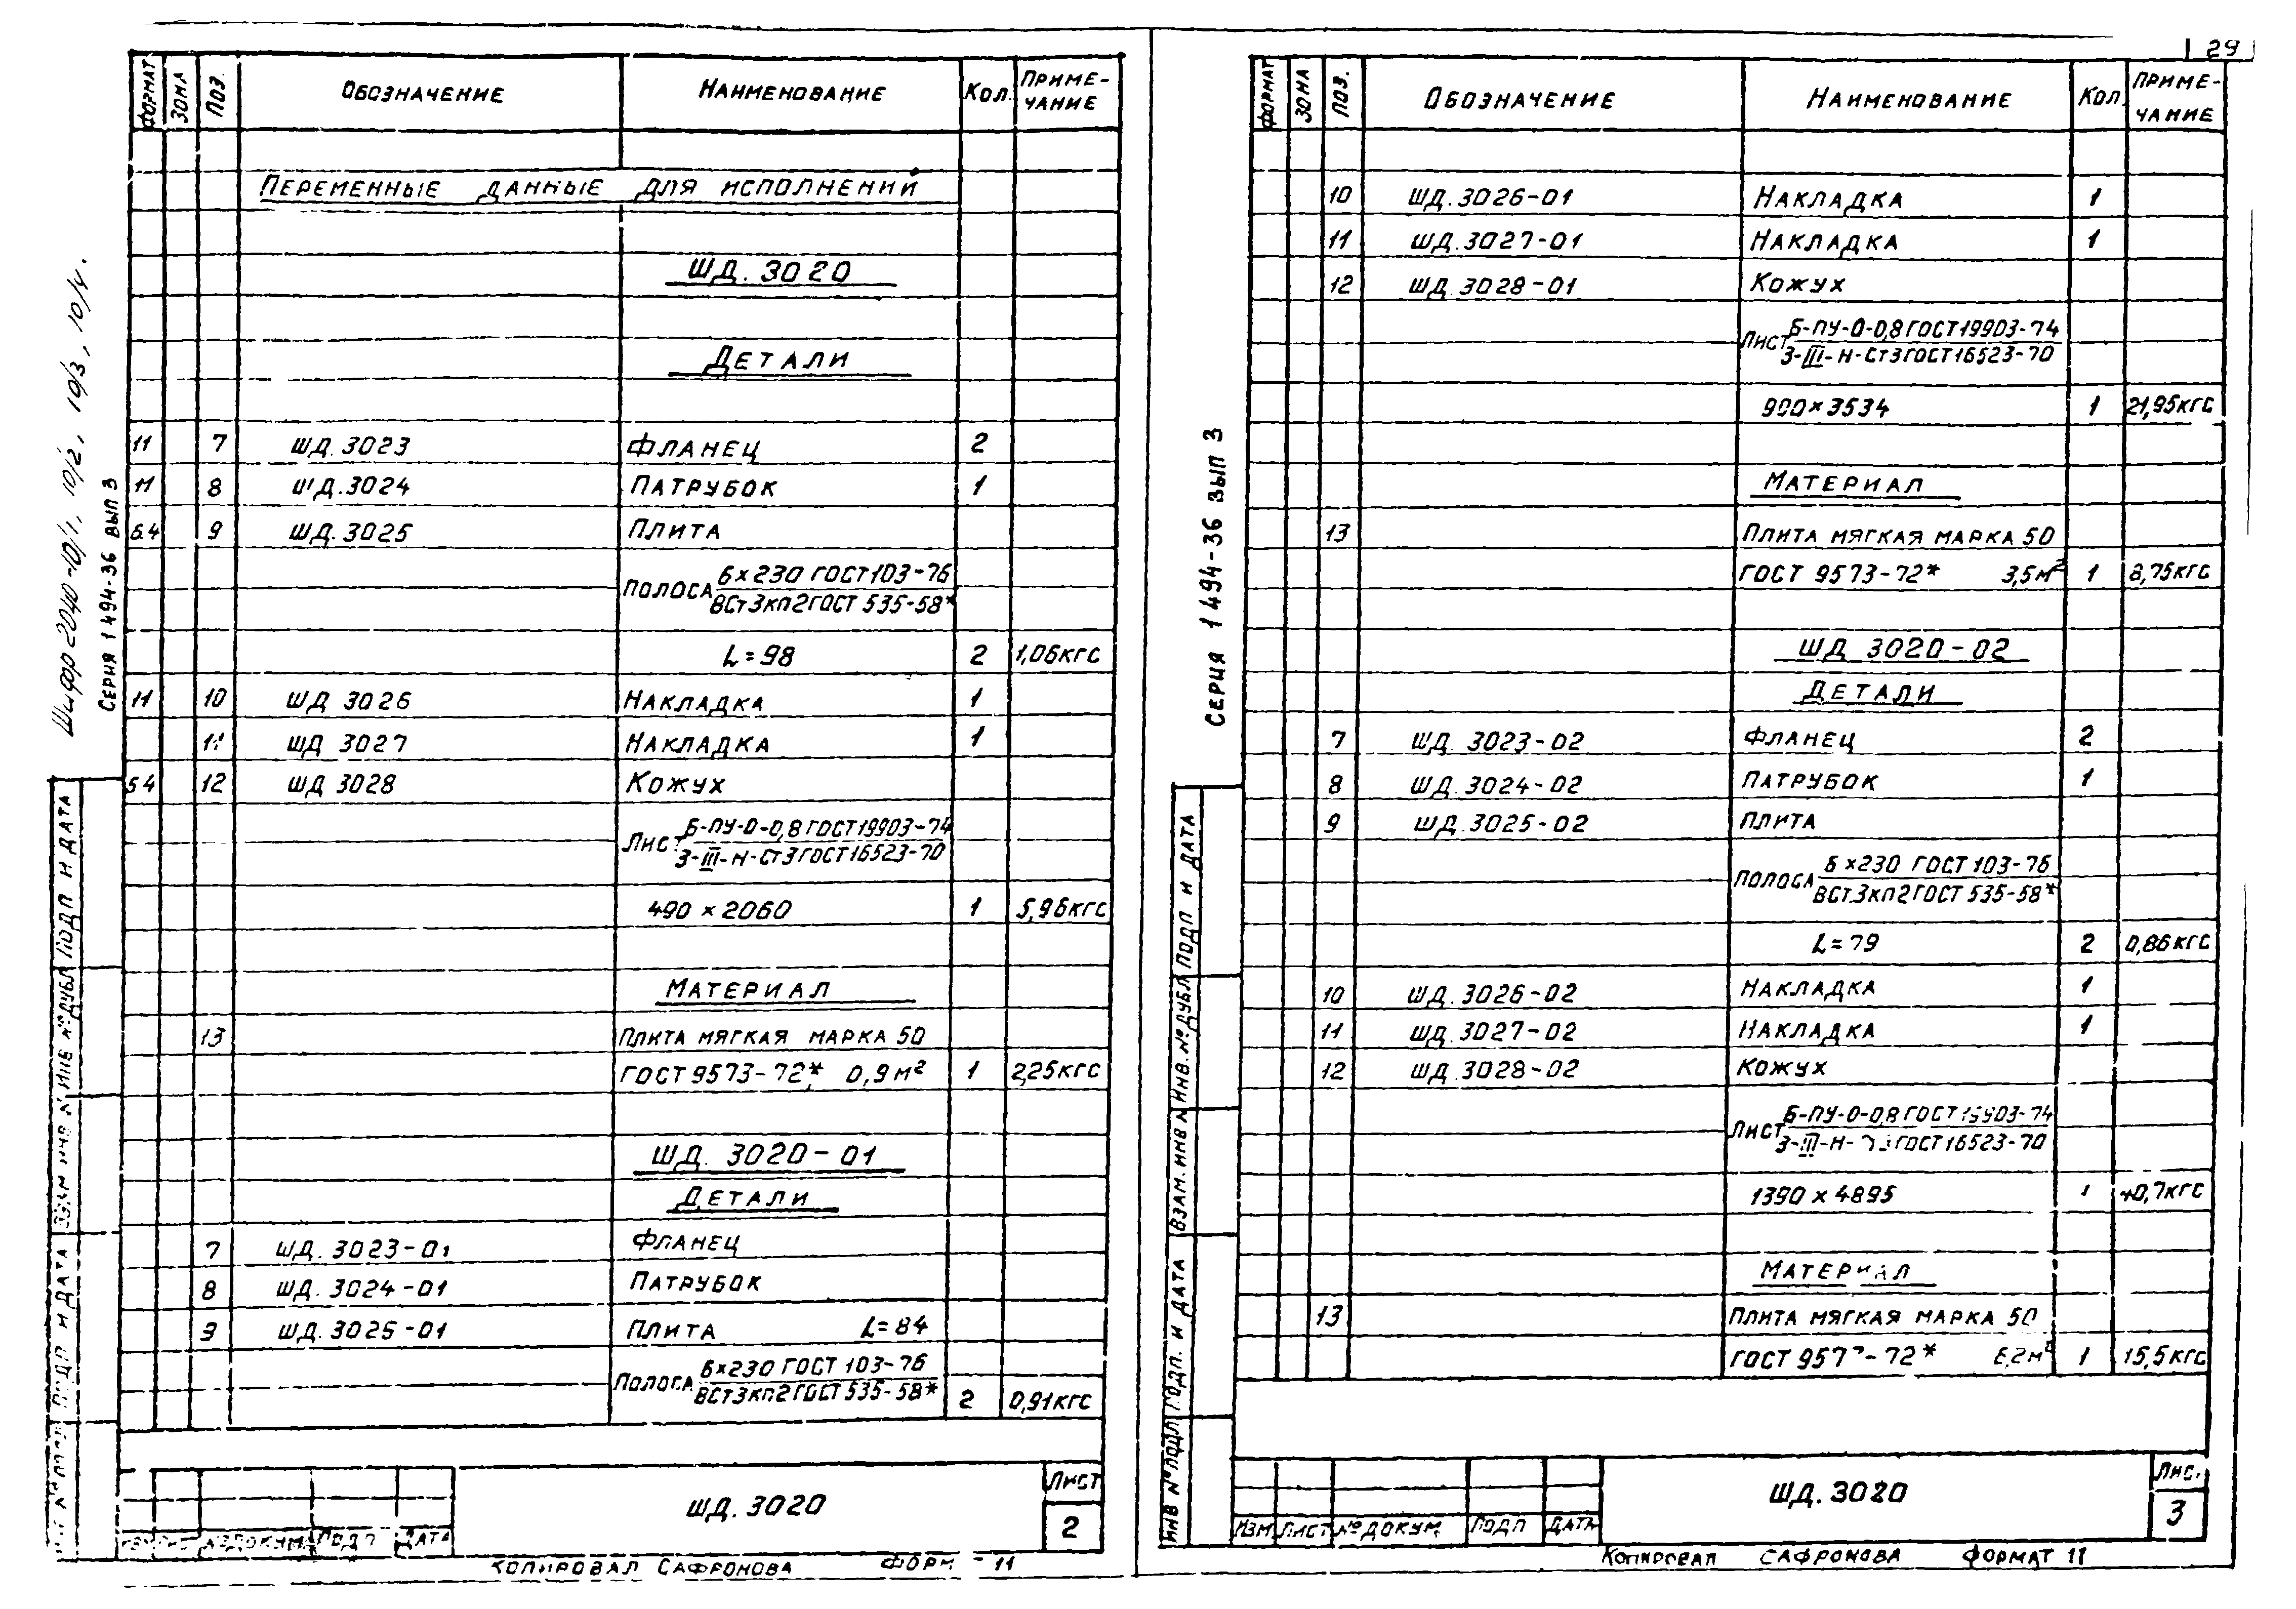 29
Шифр 2040-10/1, 10/2, 10/3, 10/4.
СЕРИЯ 1494-36 ВЫП 3
ФОРМАТ ЗОНА ПОЗ. ОБОЗНАЧЕНИЕ НАИМЕНОВАНИЕ КОЛ. ПРИМЕ-
ЧАНИЕ
ПЕРЕМЕННЫЕ ДАННЫЕ ДЛЯ ИСПОЛНЕНИЙ
ШД. 3020
ДЕТАЛИ
11 7 ШД. 3023 ФЛАНЕЦ 2
11 8 ШД.3024 ПАТРУБОК 1
Б4 9 ШД. 3025 ПЛИТА
ПОЛОСА 6×230 ГОСТ103-76
ВСт3кп2 ГОСТ 535-58*
L=98 2 1,06кгс
11 10 ШД 3026 НАКЛАДКА 1
11 ШД 3027 НАКЛАДКА 1
Б4 12 ШД 3028 КОЖУХ
ЛИСТ Б-ПУ-О-0,8 ГОСТ19903-74
3-III-Н-Ст3 ГОСТ16523-70
490 × 2060 1 5,96кгс
МАТЕРИАЛ
13 ПЛИТА МЯГКАЯ МАРКА 50
ГОСТ 9573-72* 0,9м² 1 2,25кгс
ШД. 3020-01
ДЕТАЛИ
7 ШД. 3023-01 ФЛАНЕЦ
8 ШД. 3024-01 ПАТРУБОК
9 ШД. 3025-01 ПЛИТА L=84
ПОЛОСА 6×230 ГОСТ 103-76
ВСт3кп2 ГОСТ 535-58* 2 0,91кгс
ПОДП И ДАТА
ИНВ №ДУБЛ
ВЗАМ ИНВ №
ПОДП И ДАТА
№ПОДЛ
№ДОКУМ ПОДП ДАТА
ШД. 3020
ЛИСТ
2
КОПИРОВАЛ САФРОНОВА ФОРМ 11
СЕРИЯ 1494-36 ВЫП 3
ФОРМАТ ЗОНА ПОЗ. ОБОЗНАЧЕНИЕ НАИМЕНОВАНИЕ КОЛ ПРИМЕ-
ЧАНИЕ
10 ШД.3026-01 НАКЛАДКА 1
11 ШД.3027-01 НАКЛАДКА 1
12 ШД.3028-01 КОЖУХ
ЛИСТ Б-ПУ-О-0,8 ГОСТ19903-74
3-III-Н-Ст3 ГОСТ16523-70
990×3534 1 21,95кгс
МАТЕРИАЛ
13 ПЛИТА МЯГКАЯ МАРКА 50
ГОСТ 9573-72* 3,5м² 1 8,75кгс
ШД 3020-02
ДЕТАЛИ
7 ШД 3023-02 ФЛАНЕЦ 2
8 ШД. 3024-02 ПАТРУБОК 1
9 ШД. 3025-02 ПЛИТА
ПОЛОСА 6×230 ГОСТ 103-76
ВСт3кп2 ГОСТ 535-58*
L=79 2 0,86кгс
10 ШД. 3026-02 НАКЛАДКА 1
11 ШД. 3027-02 НАКЛАДКА 1
12 ШД 3028-02 КОЖУХ
ЛИСТ Б-ПУ-О-0,8 ГОСТ 19903-74
3-III-Н- ГОСТ16523-70
1390 × 4895 1 40,7кгс
МАТЕРИАЛ
13 ПЛИТА МЯГКАЯ МАРКА 50
ГОСТ 9573-72* 6,2м² 1 15,5кгс
ПОДП И ДАТА
ИНВ.№ДУБЛ
ВЗАМ.ИНВ №
ПОДП. И ДАТА
ИНВ №ПОДЛ
ИЗМ ЛИСТ №ДОКУМ. ПОДП ДАТА
ШД. 3020
ЛИС.
3
КОПИРОВАЛ САФРОНОВА ФОРМАТ 11